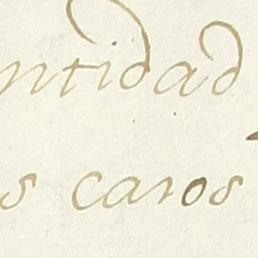 ntidad
s caros